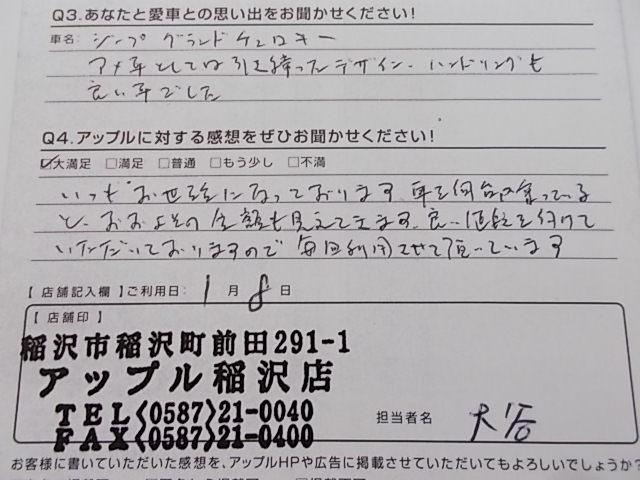 Q3.あなたと愛車との思い出をお聞かせください!
車名: ジープ グランドチェロキー
アメ車としては引き締ったデザイン、ハンドリングも
良い車でした
Q4.アップルに対する感想をぜひお聞かせください!
☑大満足 □満足 □普通 □もう少し □不満
いつもお世話になっております、車を何台も乗っている
と、おおよその金額も見えてきます、良い値段を付けて
いただいておりますので毎回利用させて頂いています
【 店舗記入欄 】ご利用日: 1 月 8 日
【 店舗印 】
稲沢市稲沢町前田291-1
アップル稲沢店
TEL<0587>21-0040
FAX<0587>21-0400
担当者名 大谷
お客様に書いていただいた感想を、アップルHPや広告に掲載させていただいてもよろしいでしょうか?